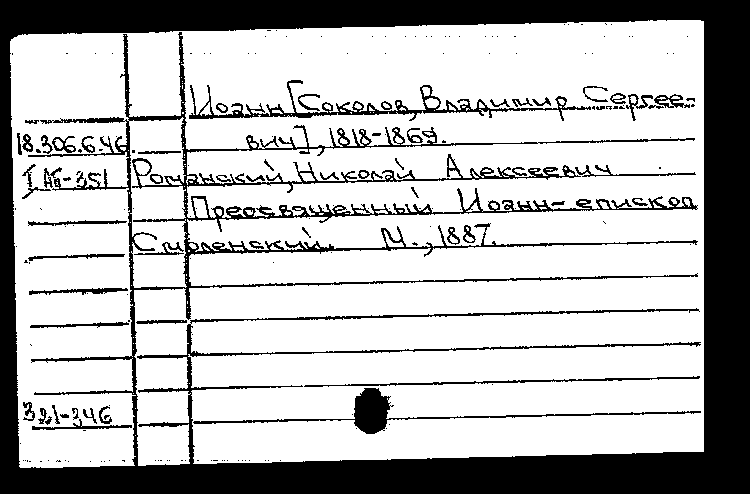 Иоанн [Соколов, Владимир Сергее-
18.306.6.46. вич], 1818-1869.
I АБ-351 Романский, Николай Алексеевич
Преосвященный Иоанн-епископ
Смоленский. М., 1887.
321-346